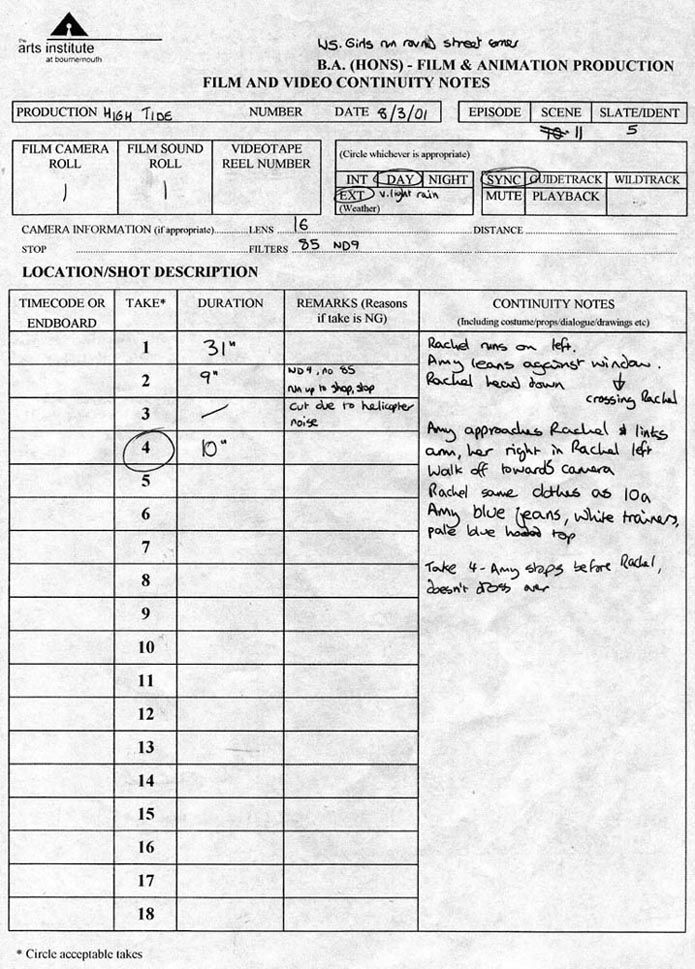 the
arts institute
at bournemouth
WS. Girls run round street corner
B.A. (HONS) - FILM & ANIMATION PRODUCTION
FILM AND VIDEO CONTINUITY NOTES
PRODUCTION HIGH TIDE NUMBER DATE 8/3/01 EPISODE SCENE SLATE/IDENT
11 5
FILM CAMERA ROLL FILM SOUND ROLL VIDEOTAPE REEL NUMBER
1 1
(Circle whichever is appropriate)
INT DAY NIGHT SYNC GUIDETRACK WILDTRACK
EXT v.light rain MUTE PLAYBACK
(Weather)
CAMERA INFORMATION (if appropriate) LENS 16 DISTANCE
STOP FILTERS 85 ND9
LOCATION/SHOT DESCRIPTION
TIMECODE OR ENDBOARD TAKE* DURATION REMARKS (Reasons if take is NG) CONTINUITY NOTES
(Including costume/props/dialogue/drawings etc)
1 31"
2 9" ND9, no 85
run up to shop, stop
3 – cut due to helicopter
noise
4 10"
5
6
7
8
9
10
11
12
13
14
15
16
17
18
Rachel runs on left.
Amy leans against window.
Rachel head down ↓
crossing Rachel
Amy approaches Rachel & links
arm, her right in Rachel left
Walk off towards camera
Rachel same clothes as 10a
Amy blue jeans, white trainers,
pale blue hooded top
Take 4 - Amy stops before Rachel,
doesn't cross over
* Circle acceptable takes